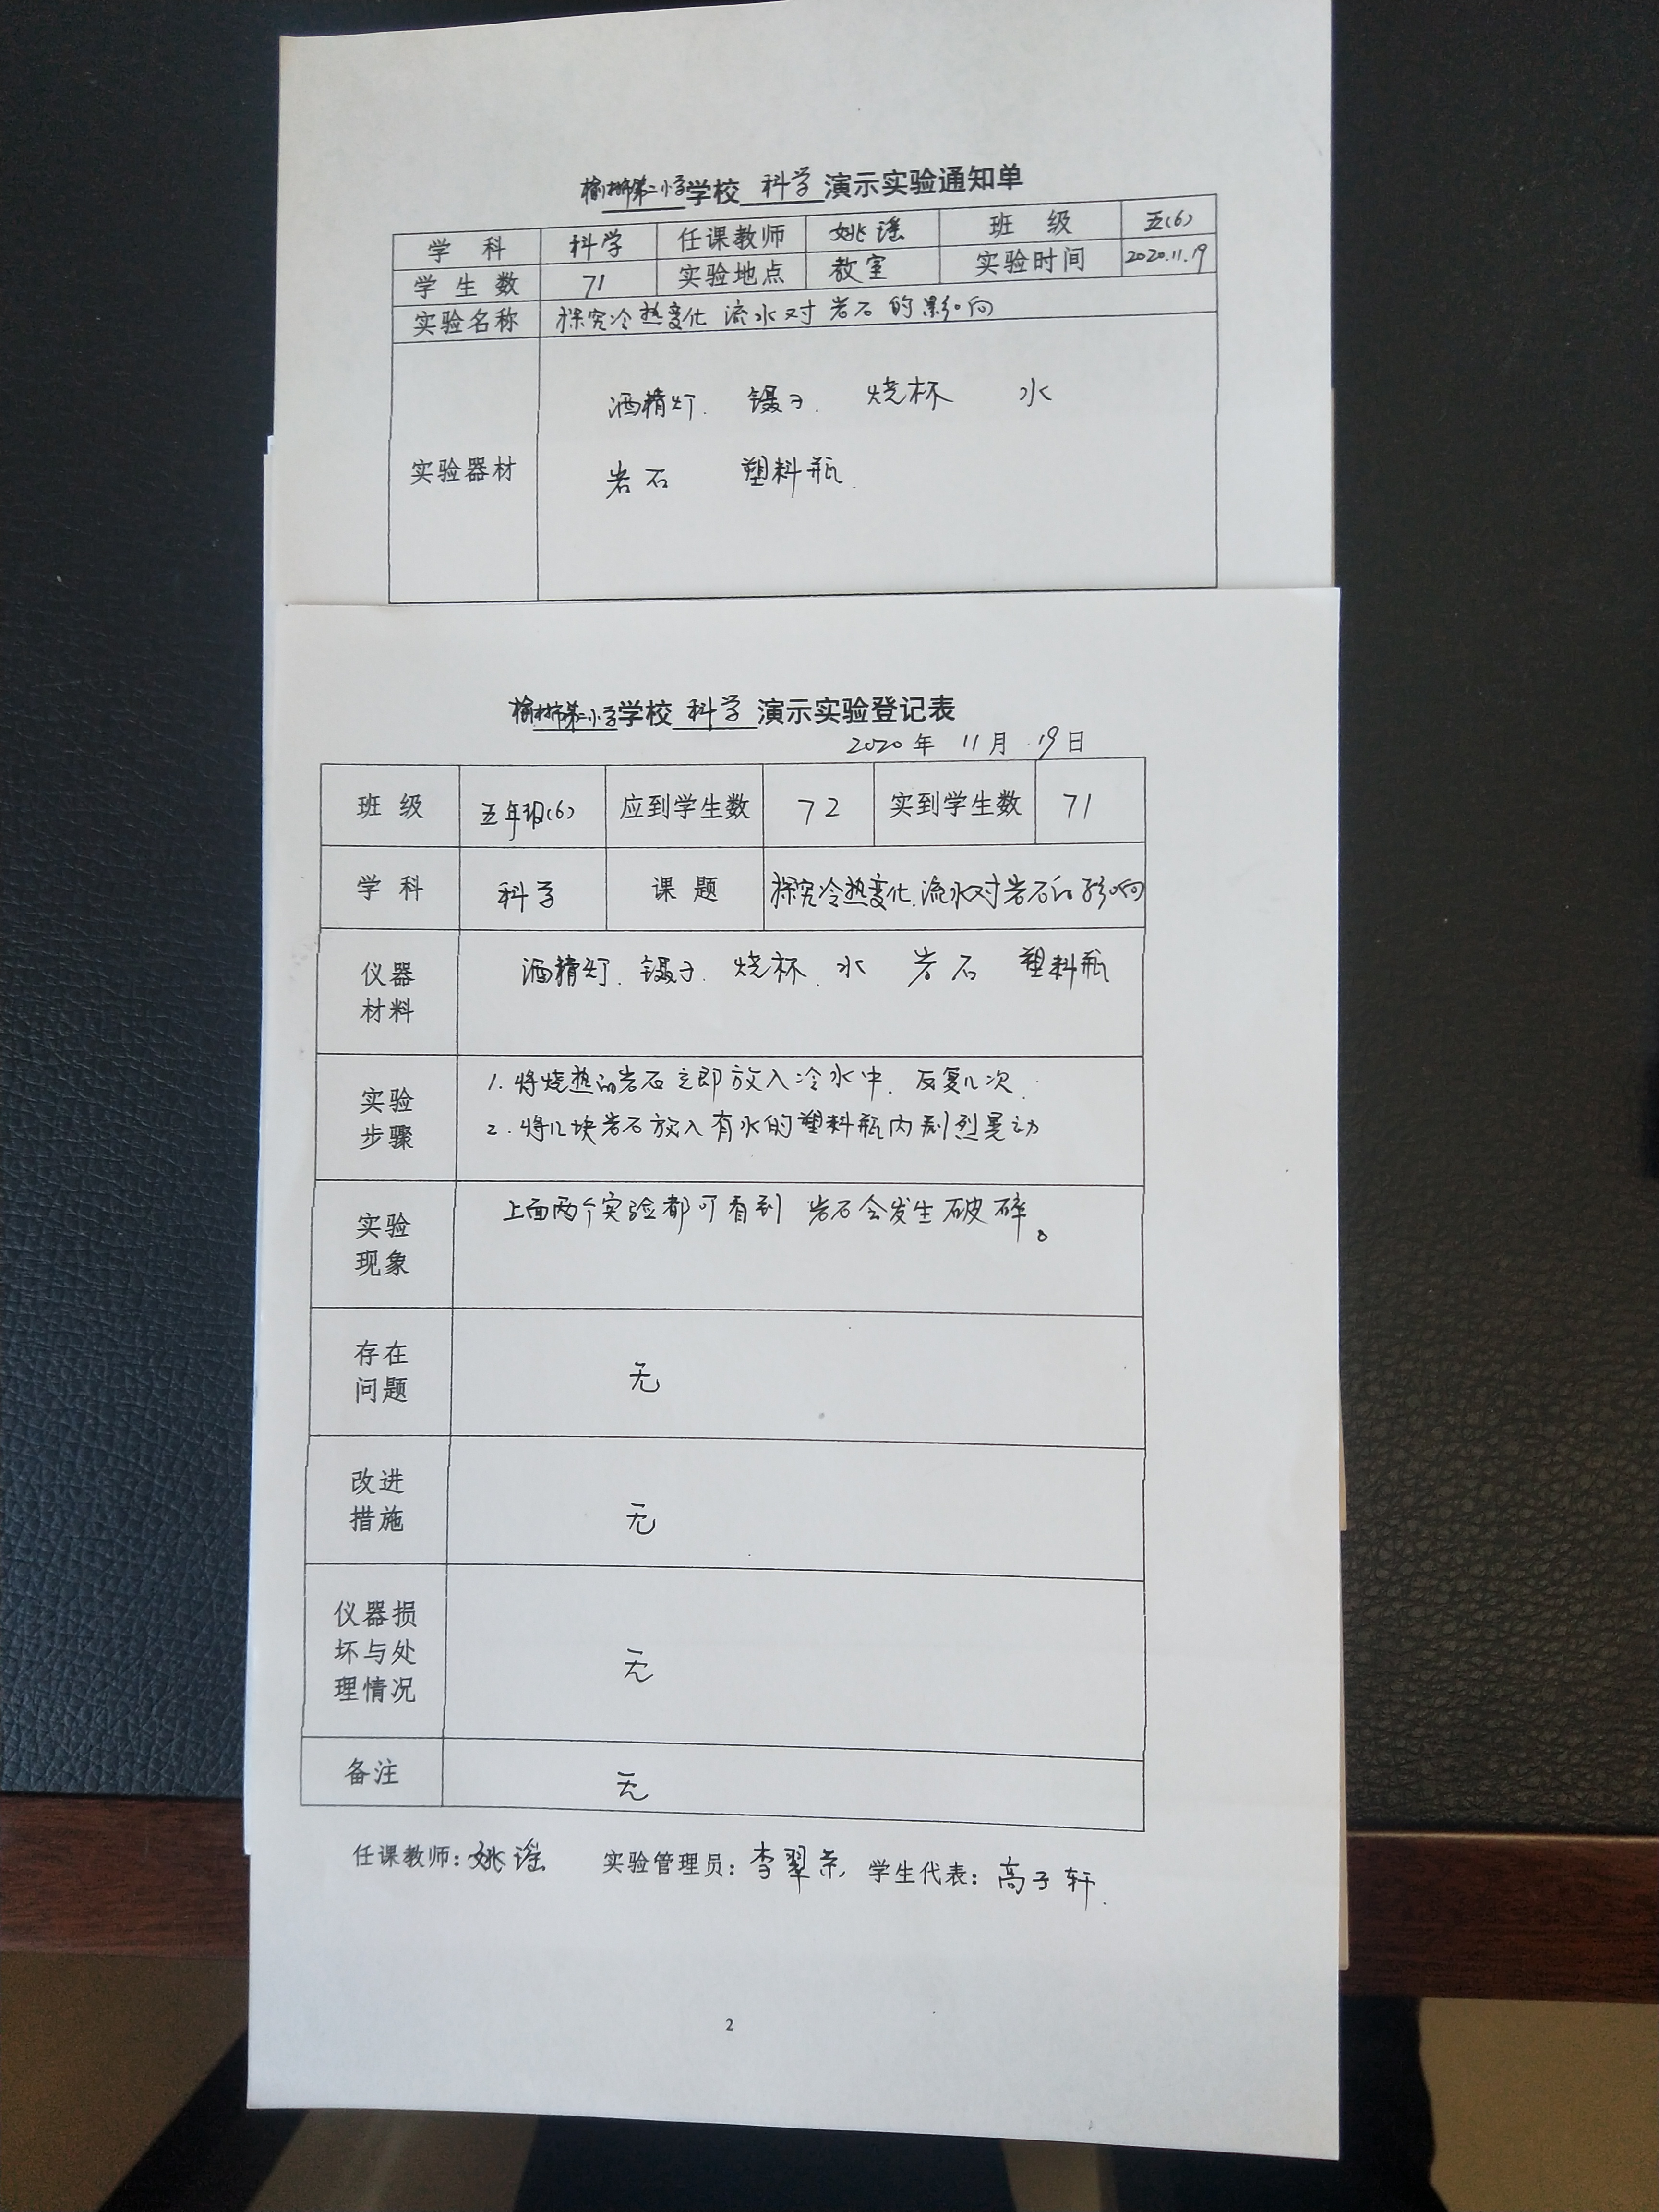 榆树市第二小学学校 科学 演示实验通知单
学 科 科学 任课教师 姚谣 班 级 五(6)
学 生 数 71 实验地点 教室 实验时间 2020.11.19
实验名称 探究冷热变化 流水对岩石的影响
实验器材
酒精灯. 镊子. 烧杯 水
岩石 塑料瓶.
榆树市第二小学学校 科学 演示实验登记表
2020年 11月 19日
班 级 五年级(6) 应到学生数 72 实到学生数 71
学 科 科学 课 题 探究冷热变化.流水对岩石的影响
仪器
材料
酒精灯. 镊子. 烧杯. 水 岩石 塑料瓶
实验
步骤
1. 将烧热的岩石立即放入冷水中. 反复几次.
2. 将几块岩石放入有水的塑料瓶内剧烈晃动
实验
现象
上面两个实验都可看到 岩石会发生破碎。
存在
问题
无
改进
措施
无
仪器损
坏与处
理情况
无
备注
无
任课教师:姚谣 实验管理员:李翠 学生代表:高子轩.
2